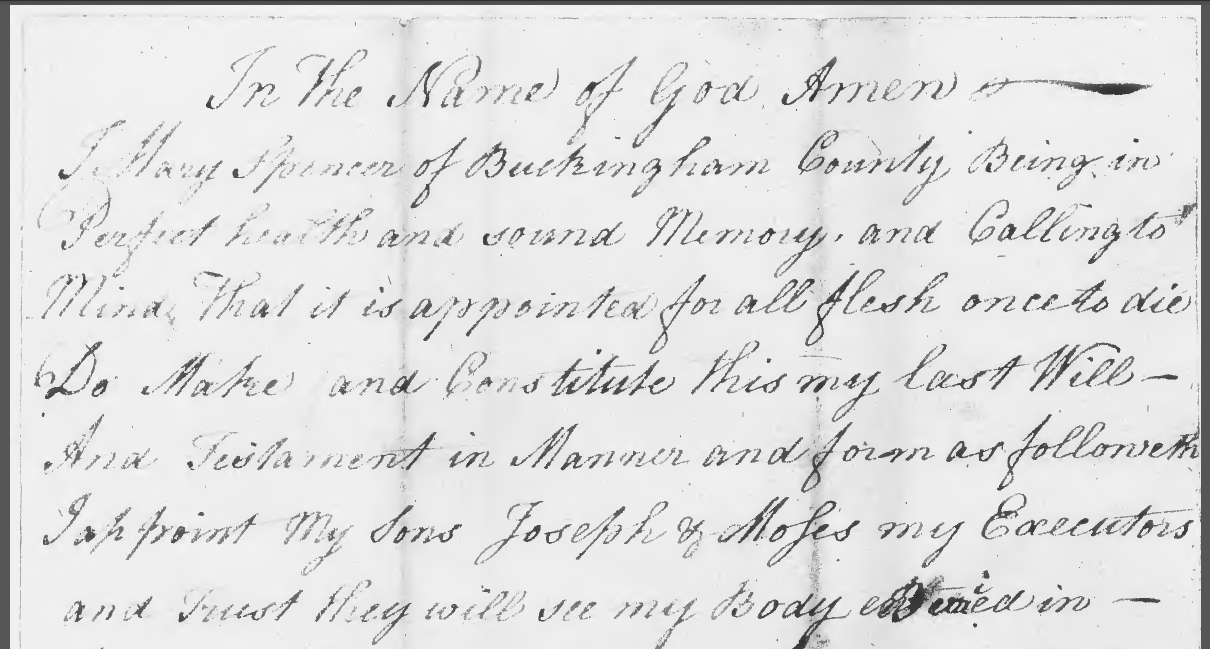 In The Name of God Amen
I Mary Spencer of Buckingham County Being in
Perfect health and sound Memory, and Calling to
Mind, That it is appointed for all flesh once to die
Do Make and Constitute this my last Will —
And Testament in Manner and form as followeth
I appoint My Sons Joseph & Moses my Executors
and Trust they will see my Body in —